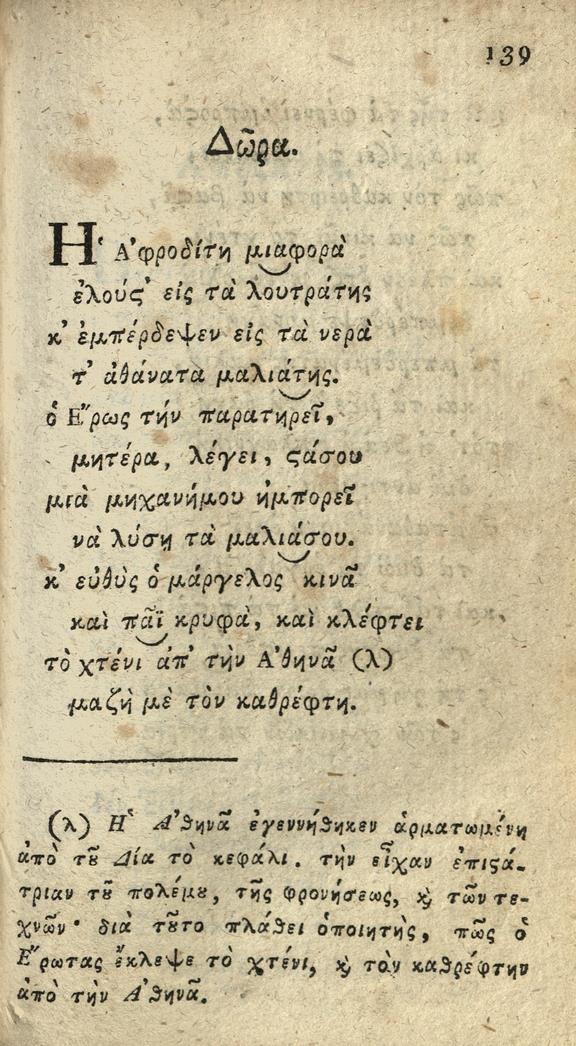 139
Δῶρα.
Ἡ Ἀφροδίτη μιαφορὰ
ἐλούϛ' εἰς τὰ λουτράτης
κ' ἐμπέρδεψεν εἰς τὰ νερὰ
τ' ἀθάνατα μαλιάτης.
ὁ Ἔρως τήν παρατηρεῖ,
μητέρα, λέγει, ϛάσου
μιὰ μηχανήμου ἠμπορεῖ
νὰ λύσῃ τὰ μαλιάσου.
κ' εὐθὺς ὁ μάργελος κινᾶ
καὶ πᾶϊ κρυφὰ, καὶ κλέφτει
τὸ χτένι ἀπ' τὴν Ἀθηνᾶ (λ)
μαζὴ μὲ τὸν καθρέφτη.
(λ) Ἡ Ἀθηνᾶ ἐγεννήθηκεν ἁρματωμένη
ἀπὸ τȣ͂ Δία τὸ κεφάλι. τὴν εἶχαν ἐπιϛά-
τριαν τȣ͂ πολέμȣ, τῆς φρονήσεως, ϗ τῶν τε-
χνῶν· διὰ τȣ͂το πλάθει ὁποιητὴς, πῶς ὁ
Ἔρωτας ἔκλεψε τὸ χτένι, ϗ τὸν καθρέφτην
ἀπὸ τὴν Ἀθηνᾶ.